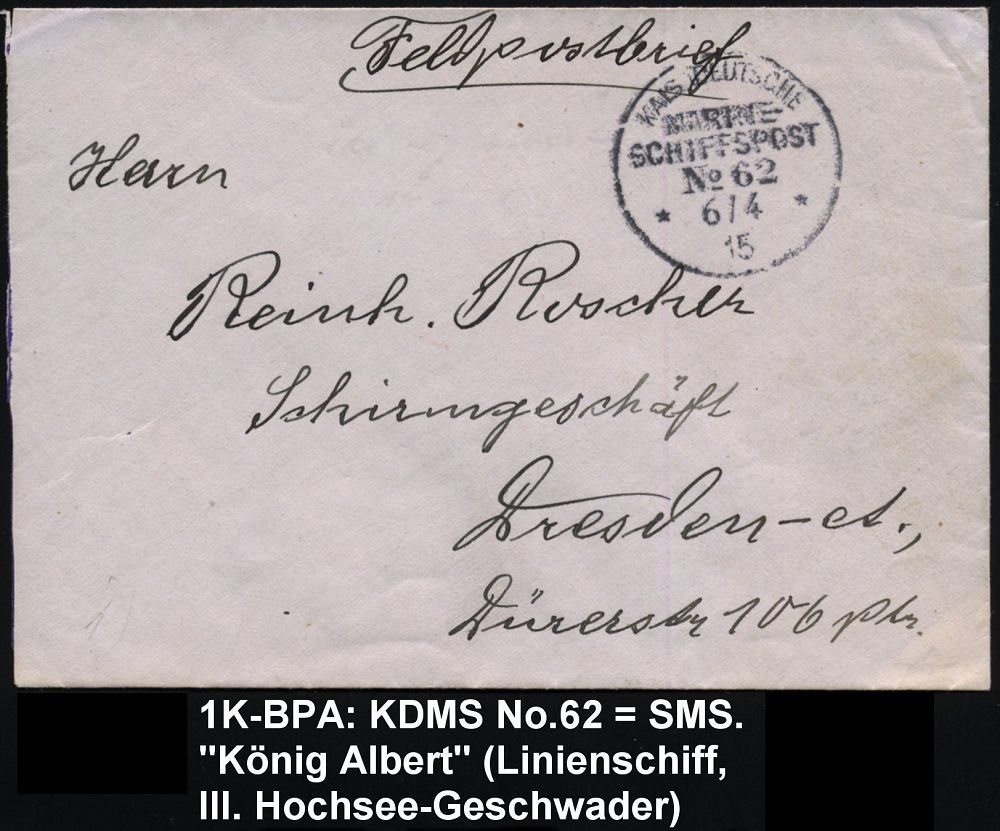 Feldpostbrief
KAIS. DEUTSCHE
MARINE=
SCHIFFSPOST
No 62
* 6/4 *
15
Herrn
Reinh. Roscher
Schirmgeschäft
Dresden-A.,
Dürerstr 106 ptr.
1K-BPA: KDMS No.62 = SMS.
"König Albert" (Linienschiff,
III. Hochsee-Geschwader)